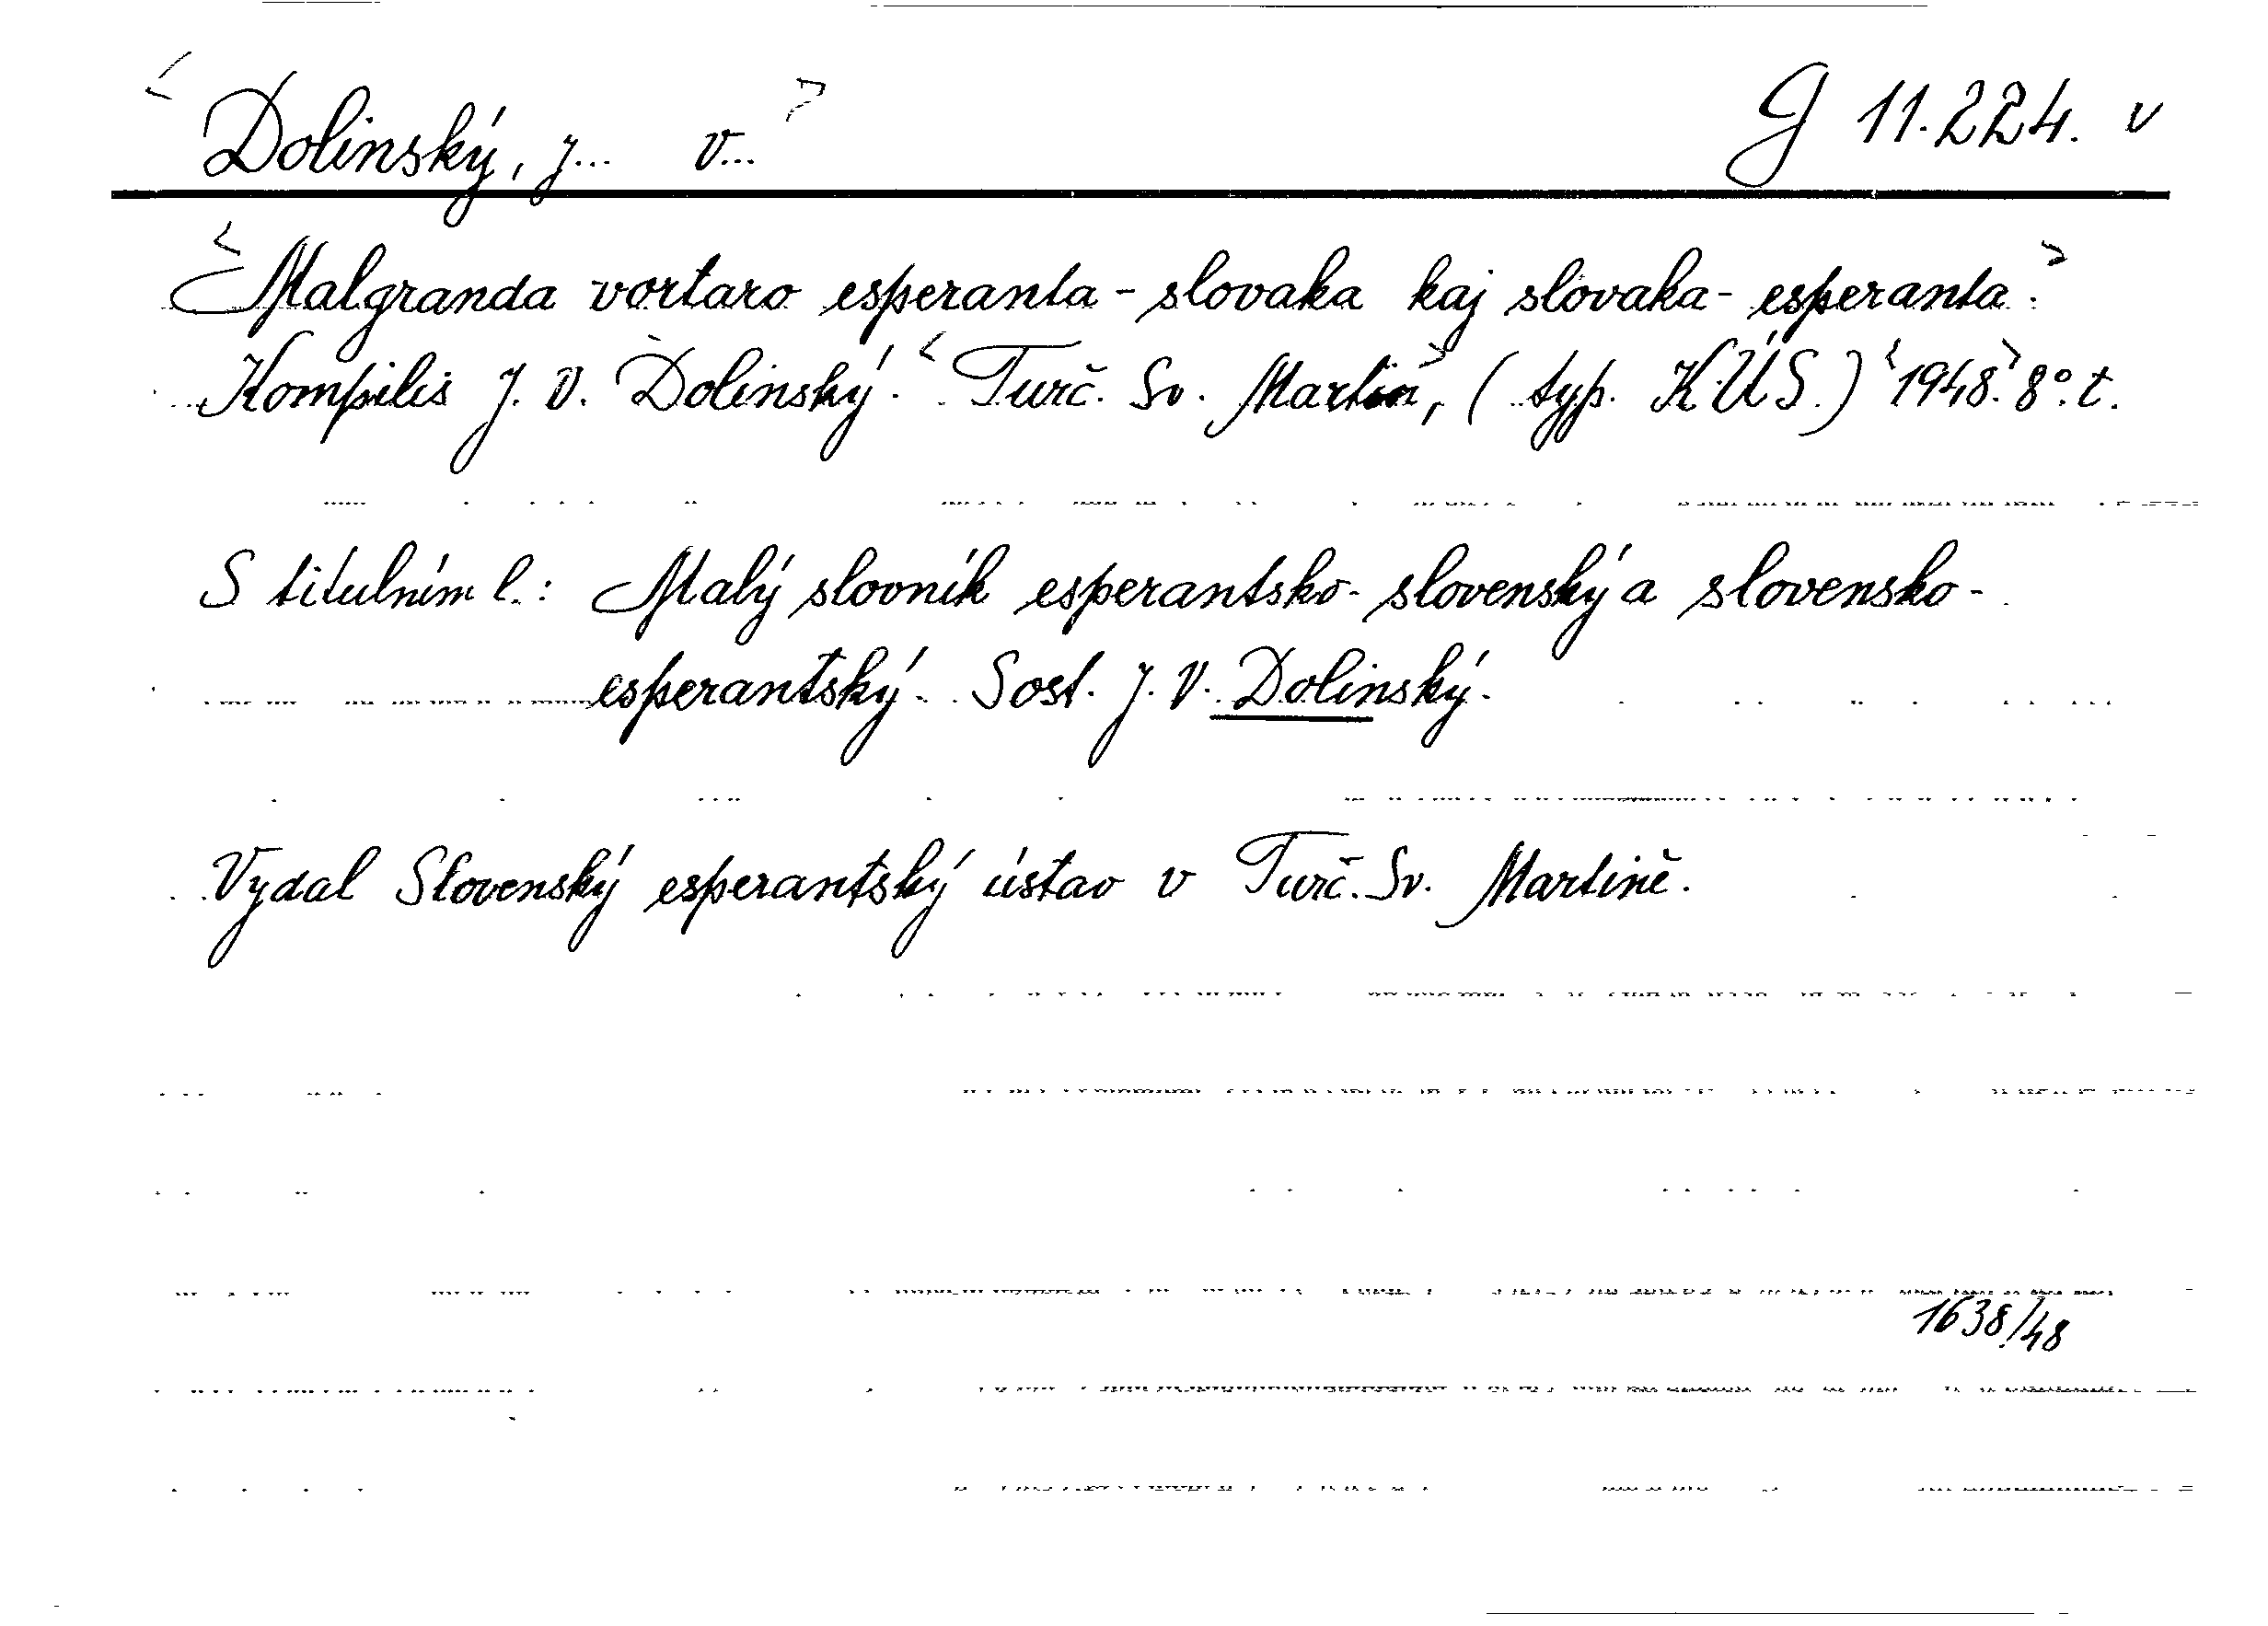 <Dolinský, J... V...> G 11.224. v
<Malgranda vortaro esperanta-slovaka kaj slovaka-esperanta.>
Kompilis J. V. Dolinský. <Turč. Sv. Martin>, (typ. KÚS.) <1948.> 8°. t.
S titulním l.: Malý slovník esperantsko-slovenský a slovensko-
esperantský. Sost. J. V. Dolinský.
Vydal Slovenský esperantský ústav v Turč. Sv. Martině.
1638/48